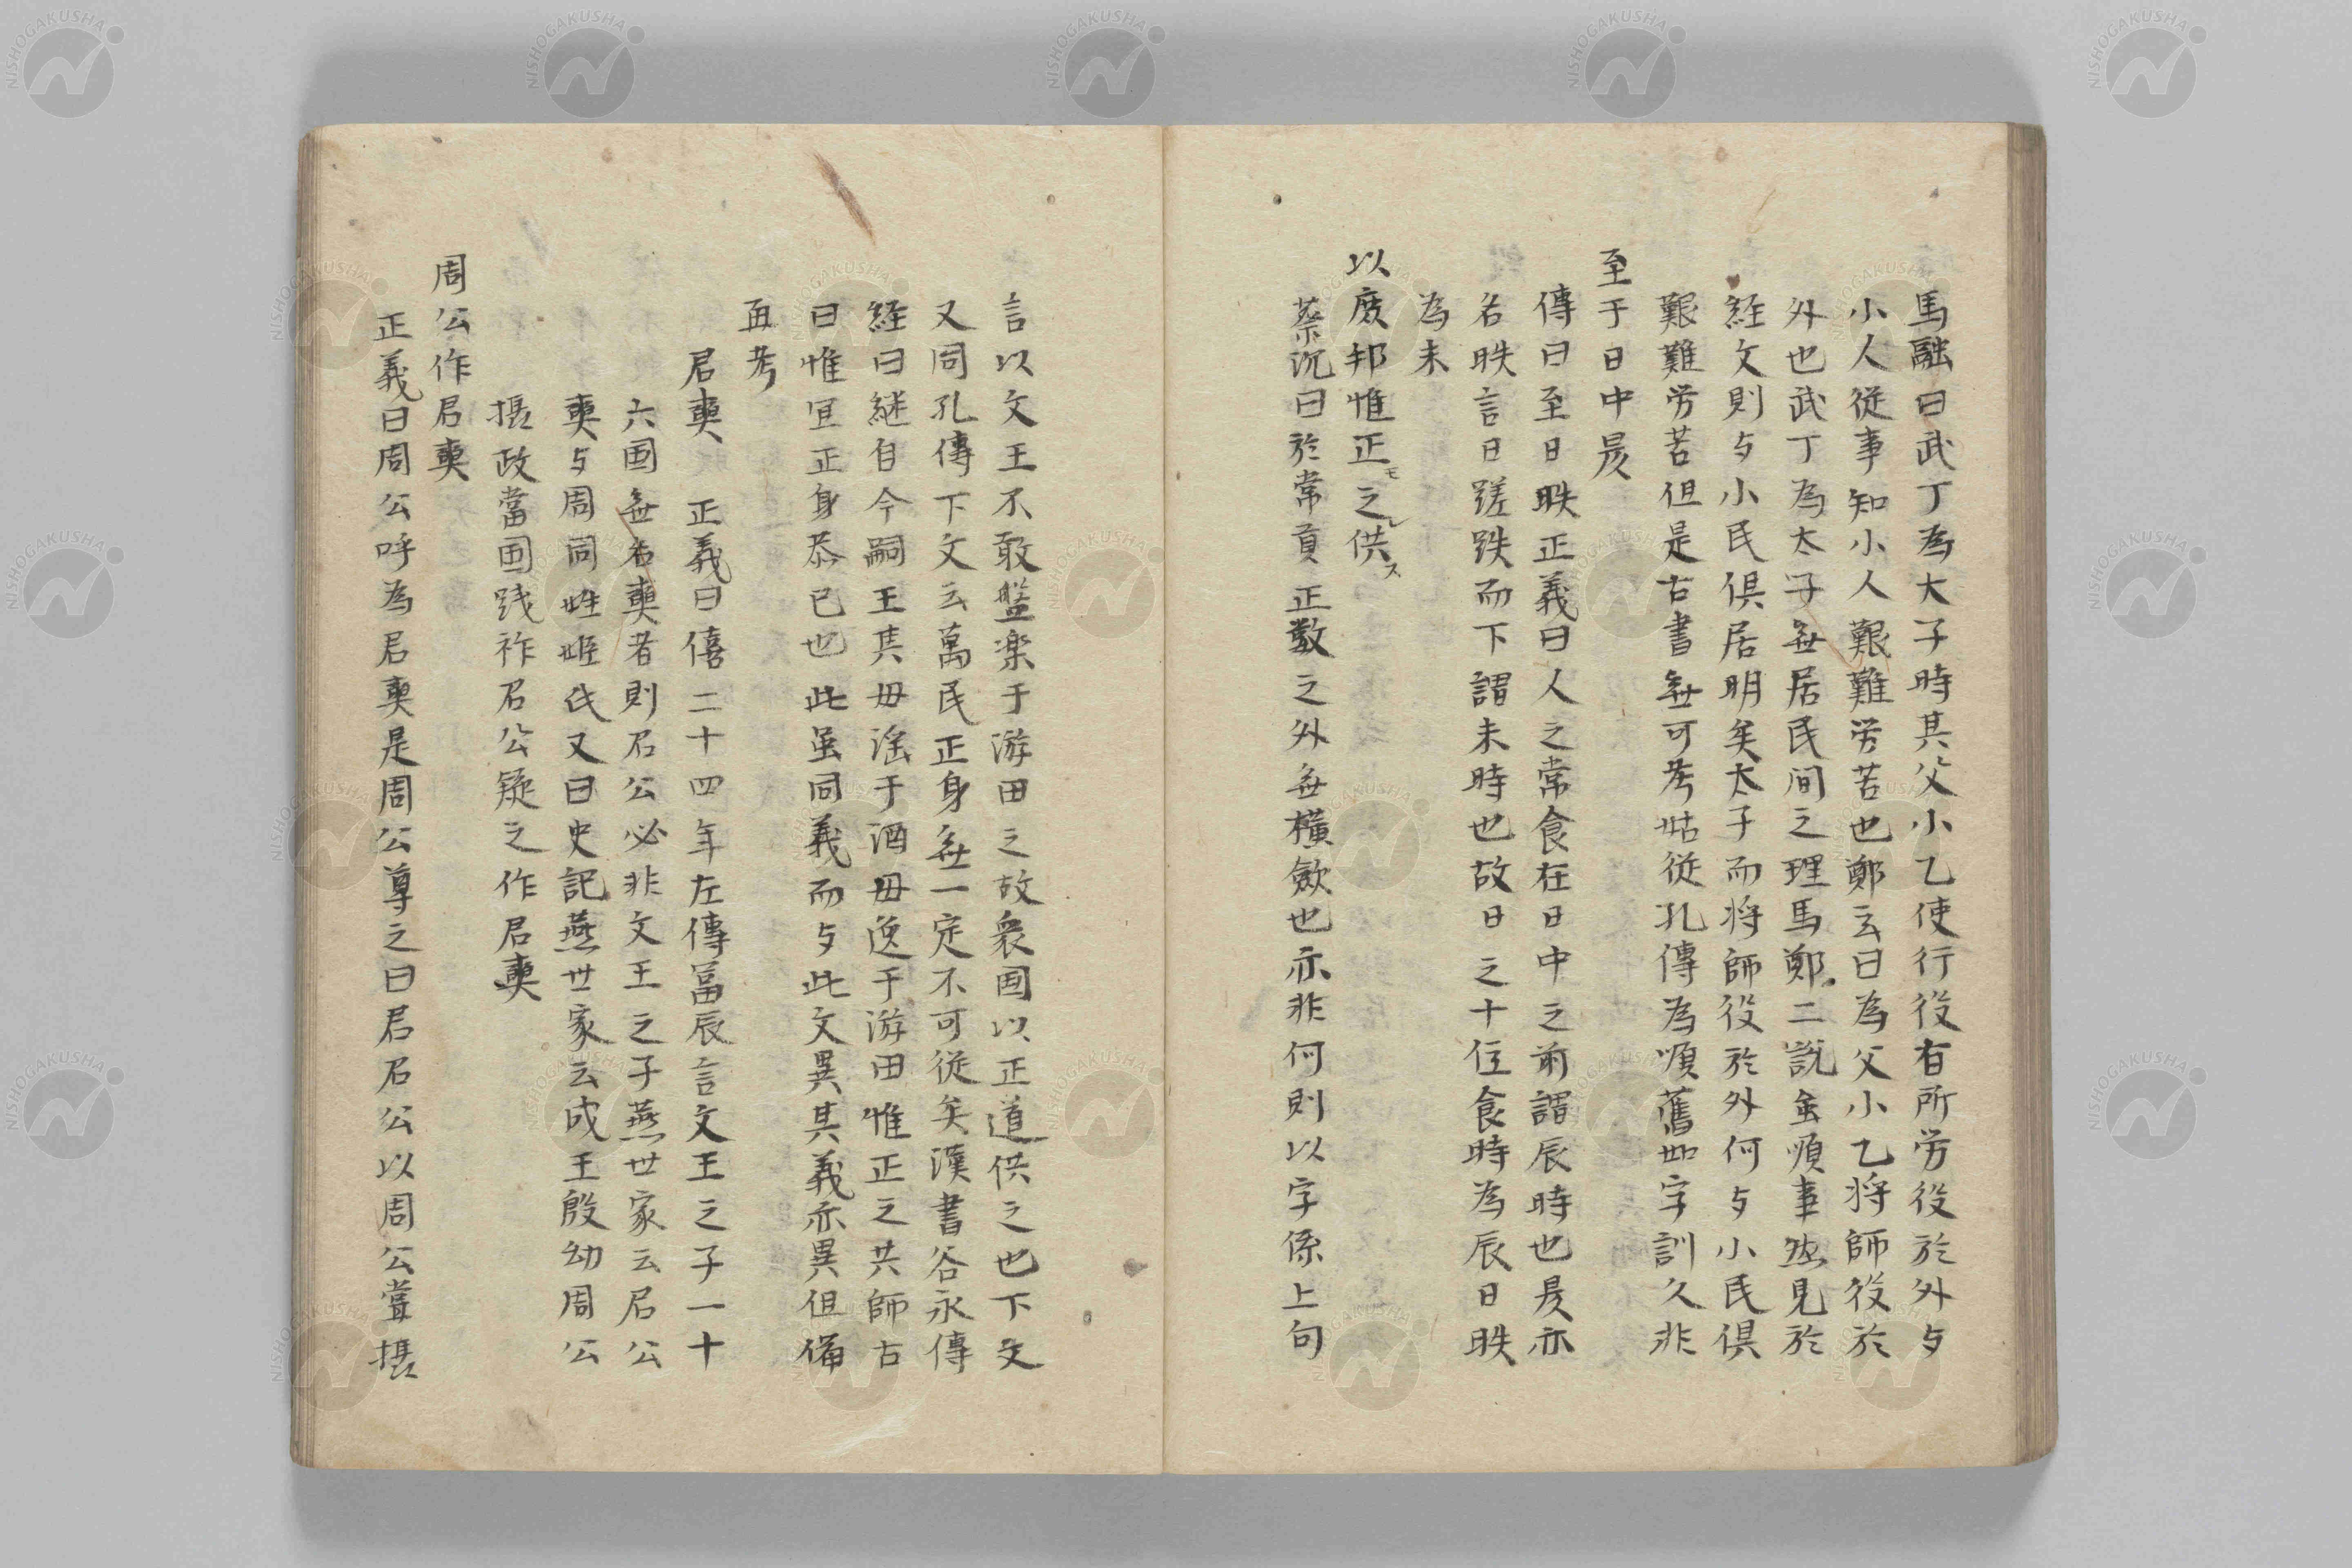 馬融曰武丁為大子時其父小乙使行役有所労役於外与
小人従事知小人艱難労苦也鄭云曰為父小乙将師役於
外也武丁為太子無居民間之理馬鄭二説虽順事然見於
経文則与小民倶居明矣太子而将師役於外何与小民倶
艱難労苦但是古書無可考姑従孔傳為順舊如字訓久非
至于日中昃
傳曰至日昳正義曰人之常食在日中之前謂辰時也昃亦
名昳言日蹉跌而下謂未時也故日之十位食時為辰日昳
為未
以庶邦惟正モ之レ供ス
蔡沉曰於常貢正数之外無横歛也亦非何則以字係上句
言以文王不敢盤楽于游田之故衆囯以正道供之也下文
又同孔傳下文云萬民正身無一定不可従矣漢書谷永傳
経曰継自今嗣王其毋滛于酒毋逸于游田惟正之共師古
曰惟宜正身恭己也此虽同義而与此文異其義亦異但備
再考
君奭　正義曰僖二十四年左傳冨辰言文王之子一十
六囯無名奭者則召公必非文王之子燕世家云召公
奭与周同姓姫氏又曰史記燕世家云成王殷幼周公
摂政當囯践祚召公疑之作君奭
周公作君奭
正義曰周公呼為君奭是周公尊之曰君召公以周公嘗摂
NISHOGAKUSHA